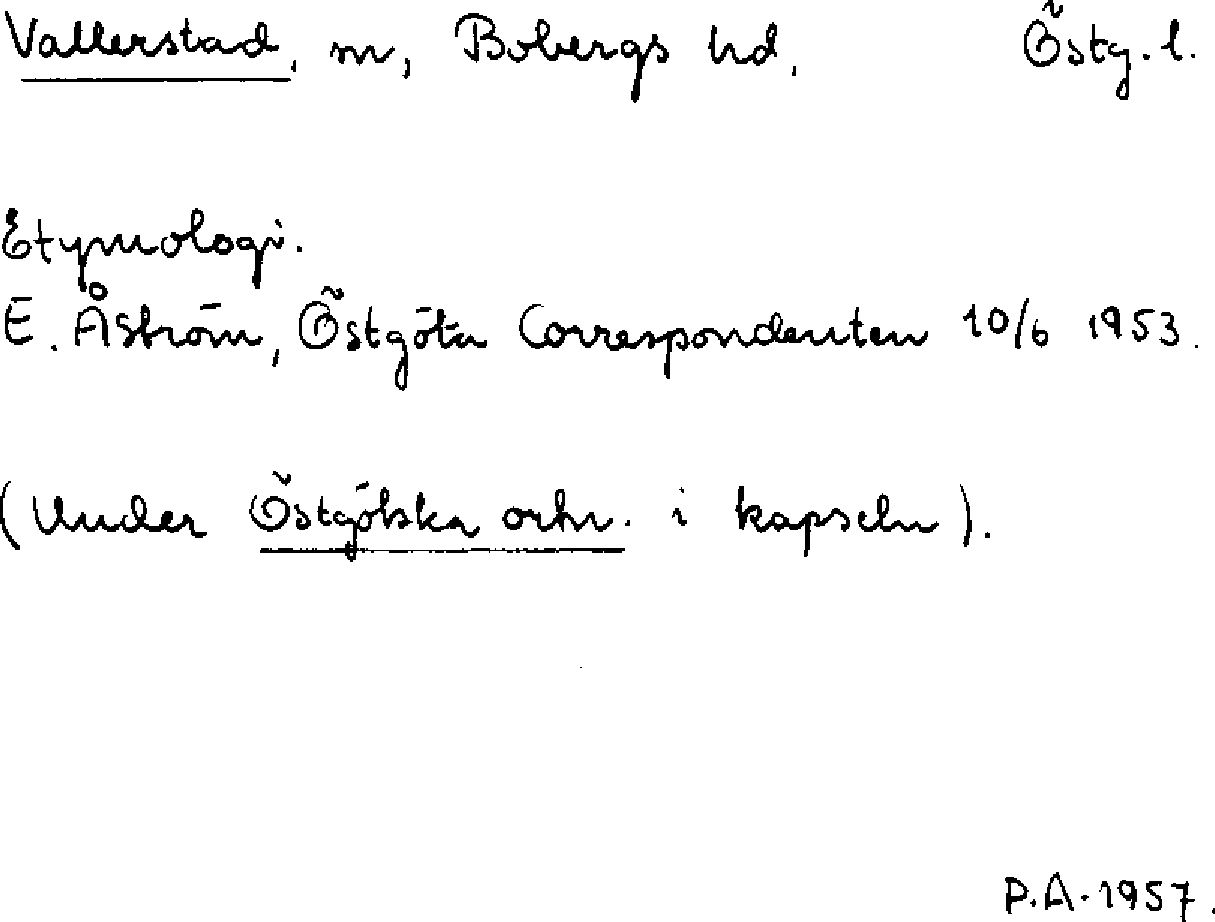 Vallerstad, sn, Bobergs hd, Östg. l.
Etymologi.
E. Åström, Östgöta Correspondenten 10/6 1953.
(Under Östgötska ortn. i kapseln).
P.A. 1957.